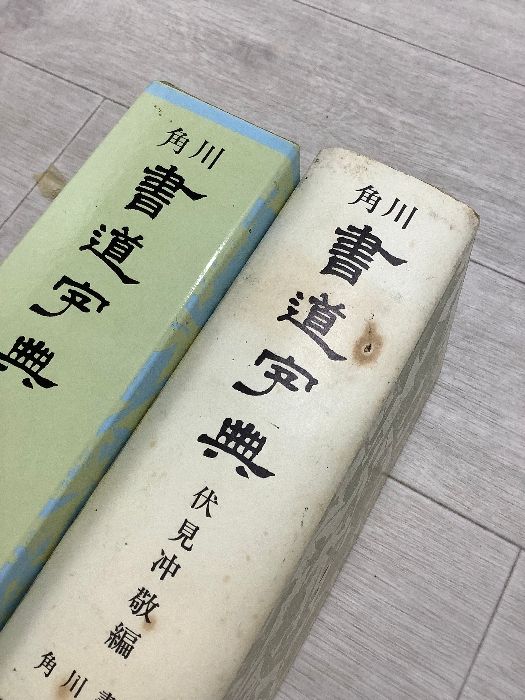 角川
書道字典
角川
書道字典
伏見冲敬編
角川書